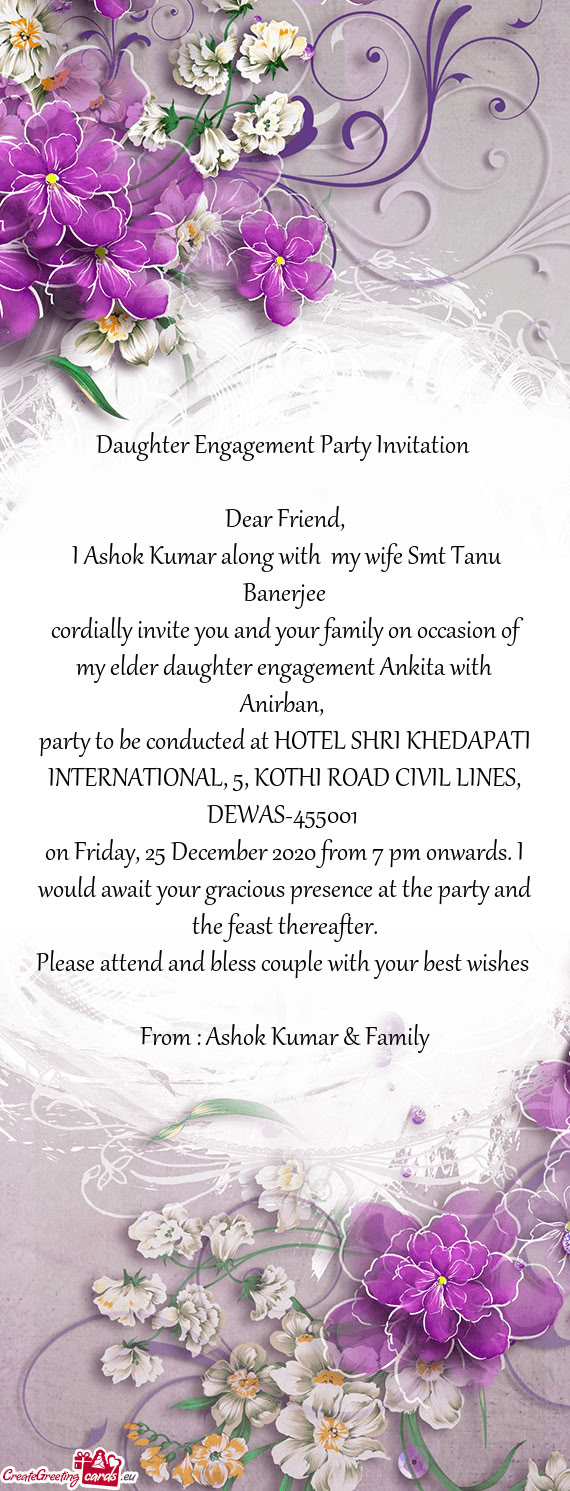 Daughter Engagement Party Invitation
Dear Friend,
I Ashok Kumar along with  my wife Smt Tanu
Banerjee
cordially invite you and your family on occasion of
my elder daughter engagement Ankita with
Anirban,
party to be conducted at HOTEL SHRI KHEDAPATI
INTERNATIONAL, 5, KOTHI ROAD CIVIL LINES,
DEWAS-455001
on Friday, 25 December 2020 from 7 pm onwards. I
would await your gracious presence at the party and
the feast thereafter.
Please attend and bless couple with your best wishes
From : Ashok Kumar & Family
CreateGreeting cards .eu